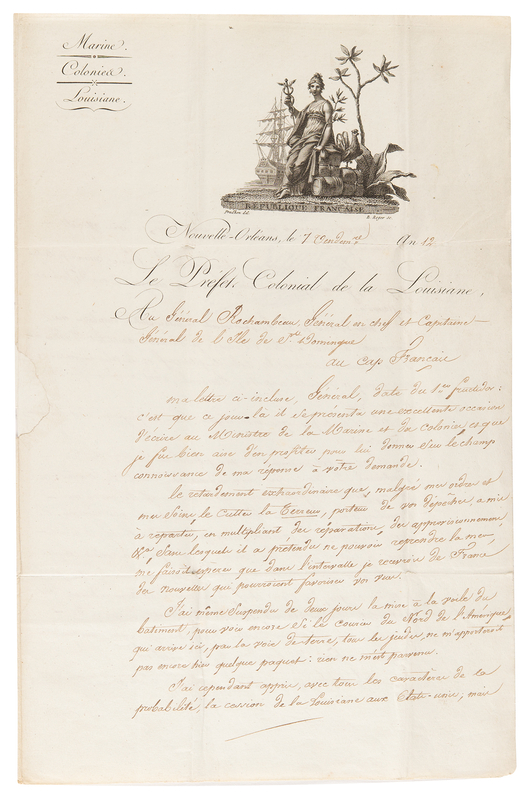 Marine.
Colonies.
Louisiane.
RÉPUBLIQUE FRANÇAISE
B. Roger sc.
Nouvelle-Orléans, le 7 Vendem.re An 12.
Le Préfet Colonial de la Louisiane,
Au Général Rochambeau, Général en chef et Capitaine-
Général de l'Ile de St. Domingue
au Cap Français
ma lettre ci-incluse, Général, date du 1er fructidor :
c'est que ce jour-là il se présenta une excellente occasion
d'écrire au Ministre de la Marine et des Colonies, et que
je fus bien aise d'en profiter pour lui donner sur le champ
connoissance de ma réponse à vôtre demande.
le retardement extraordinaire que, malgré mes ordres et
mes soins, le Cutter la Terreur, porteur de vos dépêches, a mis
à repartir, en multipliant des réparations, des approvisionnemens
&.a, sans lesquels il a prétendu ne pouvoir reprendre la mer,
me faisoit espérer que dans l'intervalle je recevrois de France
des nouvelles qui pourroient favoriser vos vues.
J'ai même suspendu de deux jours la mise à la voile du
batiment, pour voir encore si le courier du Nord de l'Amérique,
qui arrive ici, par la voie de terre, tous les jeudis, ne m'apporteroit
pas encore hier quelque paquet : rien ne m'est parvenu.
J'ai cependant appris, avec tous les caractères de la
probabilité, la cession de la Louisiane aux Etats-unis, mais